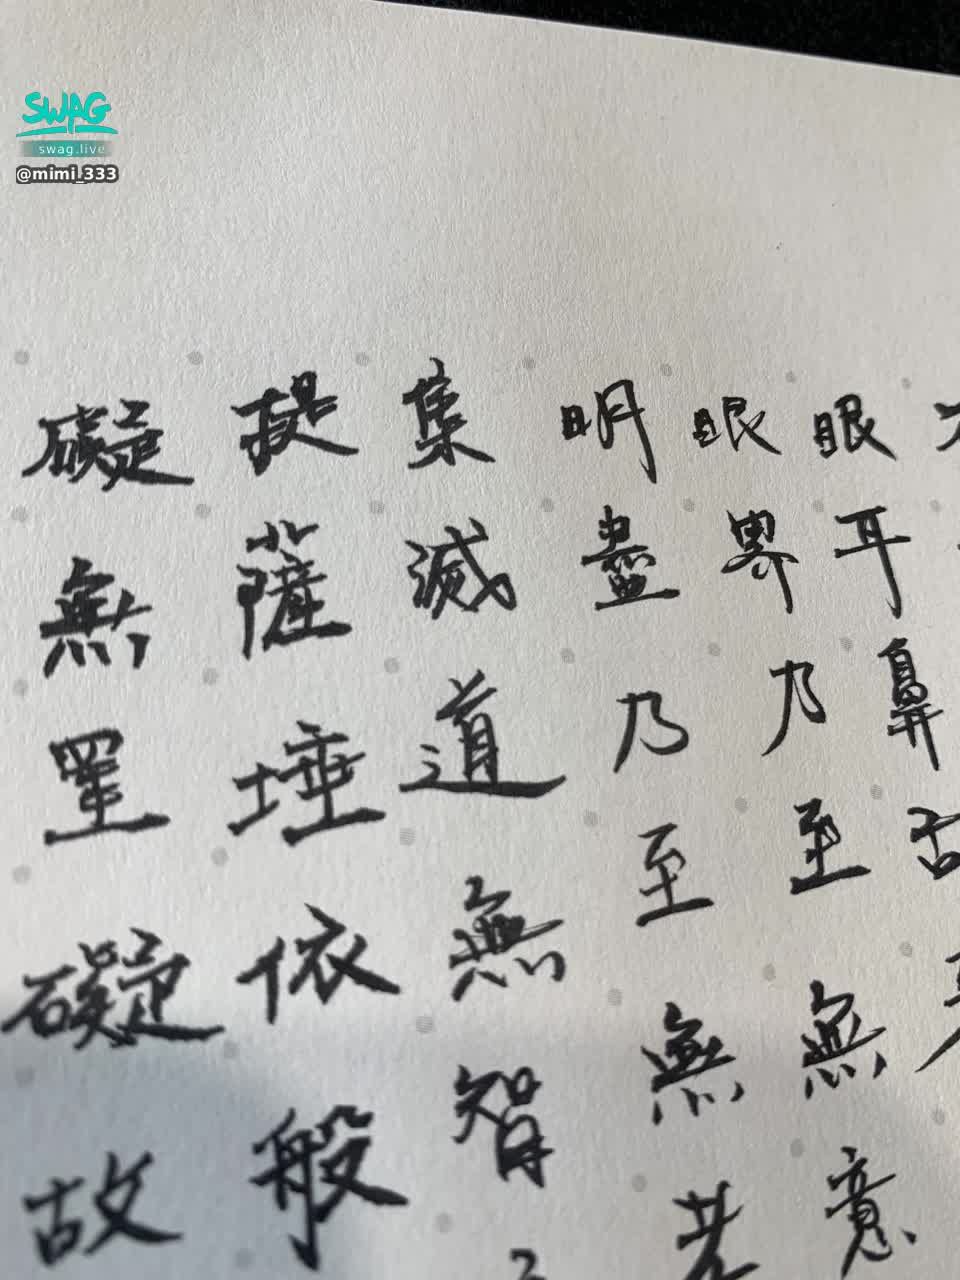 SWAG
swag.live
@mimi_333
眼耳鼻舌
眼界乃至無意
明盡乃至無老
集滅道無智
提薩埵依般
礙無罣礙故